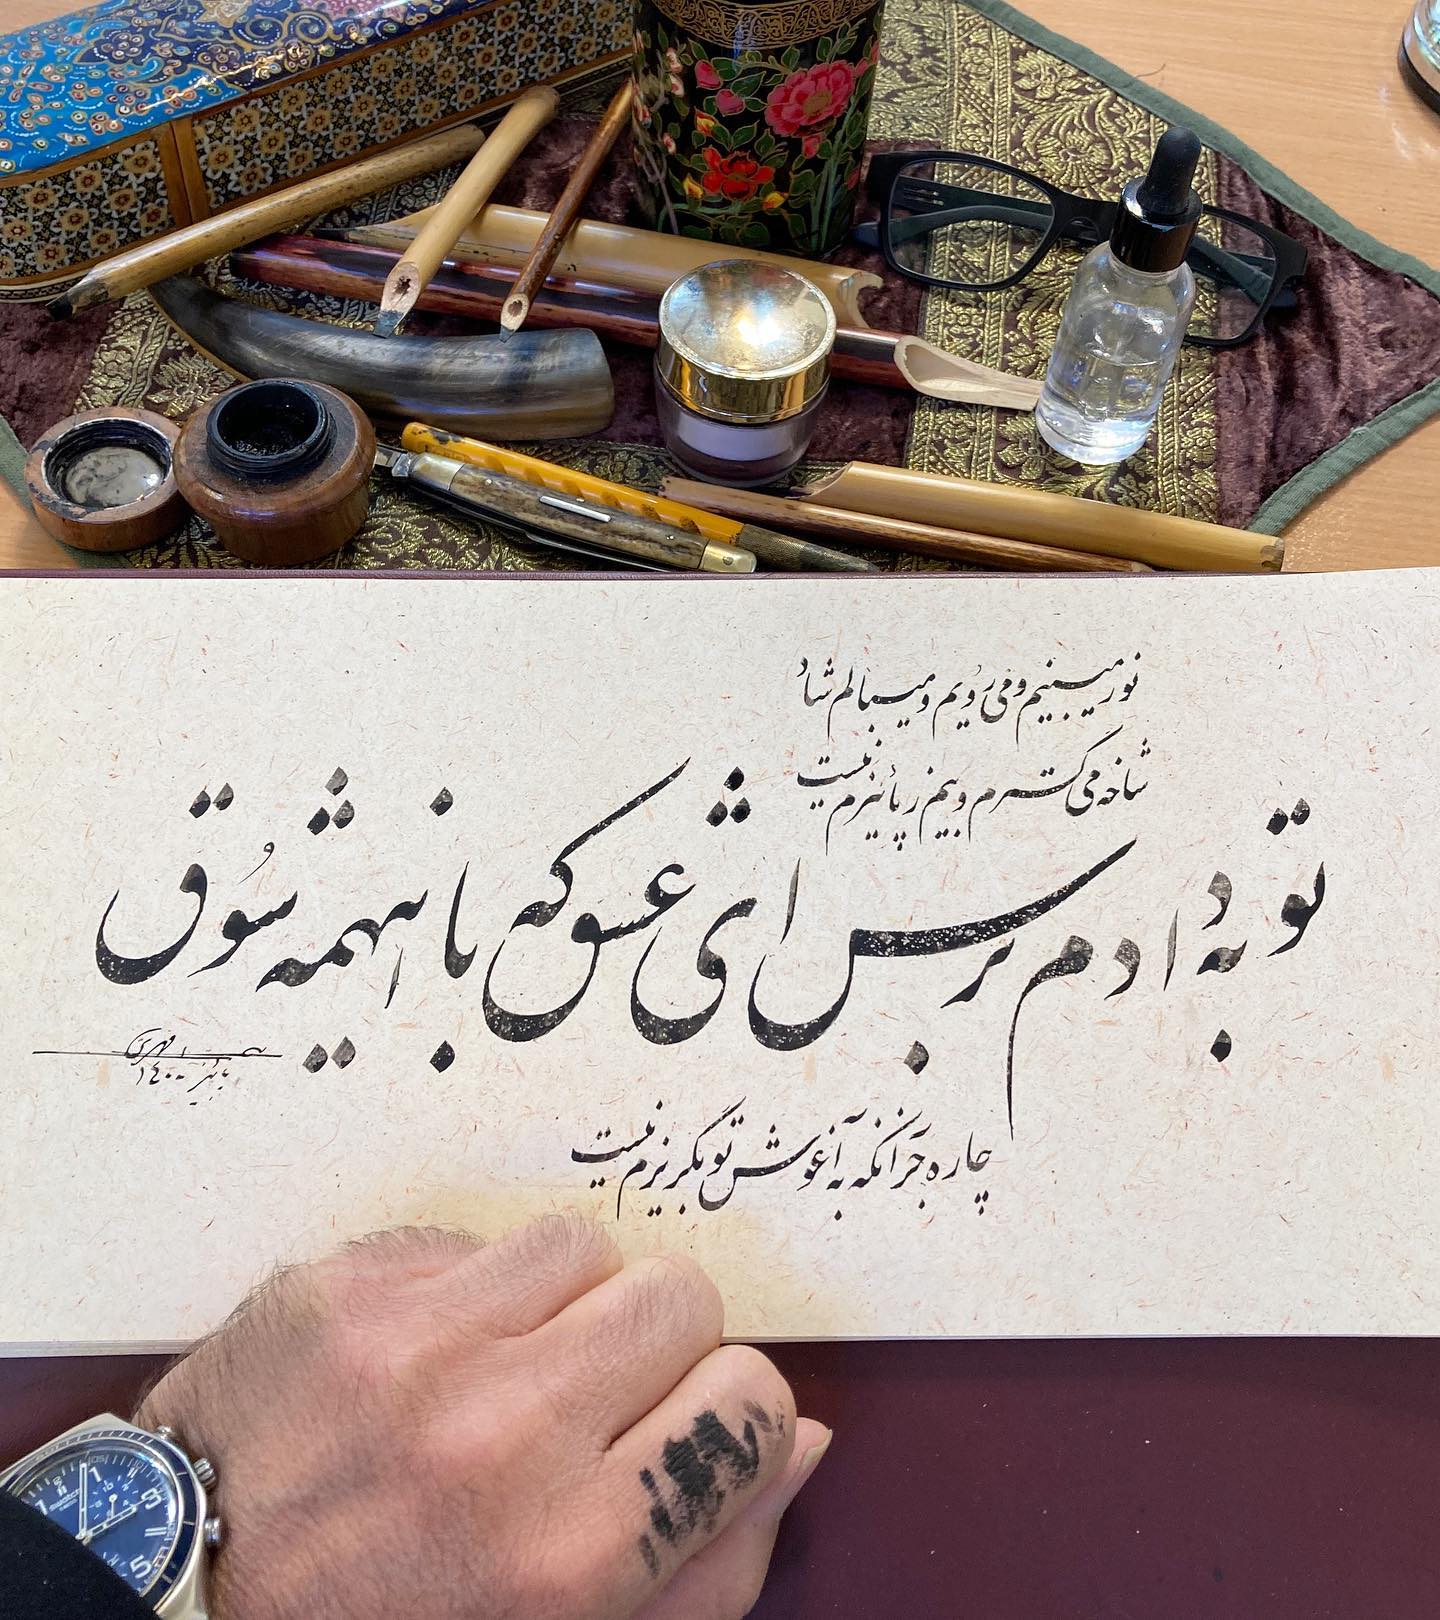 نور میبینم و می رویم و میبالم شاد
شاخه می گسترم و بیم ز پائیزم نیست
تو به دادم برس ای عشق که با اینهمه شوق
چاره جز آنکه به آغوش تو بگریزم نیست
پائیز ۱۴۰۰
swatch